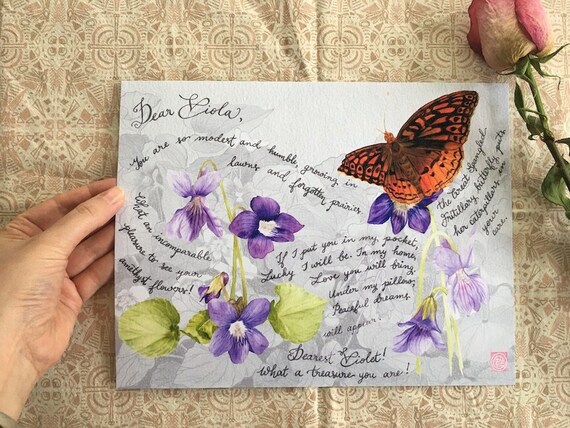 Dear Viola,
You are so modest and humble, growing in
lawns and forgotten prairies.
What an incomparable
pleasure to see your
amethyst flowers!
If I put you in my pocket,
Lucky I will be. In my home,
Love you will bring.
Under my pillow,
Peaceful dreams
will appear.
the Great Spangled
Fritillary butterfly puts
her caterpillars in
your
care.
Dearest Violet!
What a treasure you are!